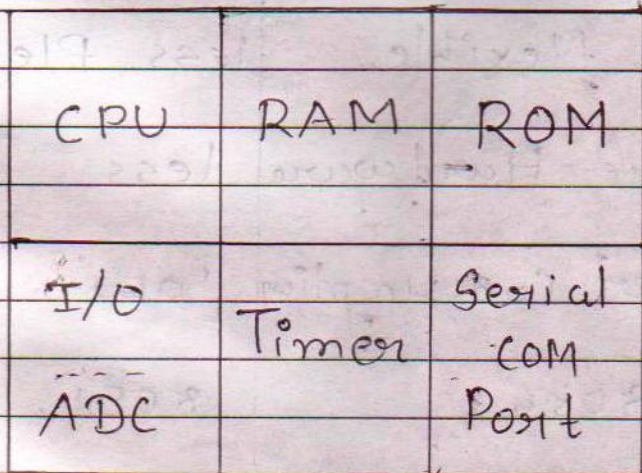 CPU RAM ROM
I/O Timer Serial
COM
ADC Port